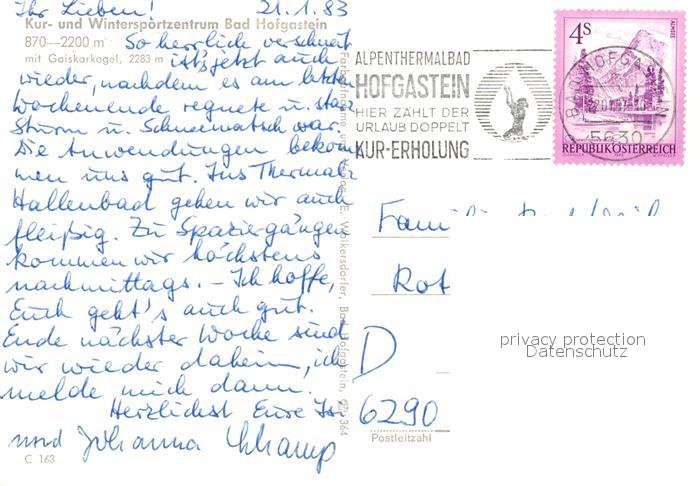 Ihr Lieben! 21.1.83
Kur- und Wintersportzentrum Bad Hofgastein
870—2200 m
mit Gaiskarkogel, 2283 m
So herrlich verschneit
ist's jetzt auch
wieder, nachdem es am letzten
Wochenende regnete u. stark
Sturm u. Schneematsch war.
Die Anwendungen bekom-
men uns gut. Ins Thermal-
Hallenbad gehen wir auch
fleißig. Zu Spaziergängen
kommen wir höchstens
nachmittags. – Ich hoffe,
Euch geht's auch gut.
Ende nächster Woche sind
wir wieder daheim, ich
melde mich dann.
Herzlichst Eure
und Johanna
C 163
Wolkersdorfer, Bad Hofgastein, 364
ALPENTHERMALBAD
HOFGASTEIN
HIER ZÄHLT DER
URLAUB DOPPELT
KUR-ERHOLUNG
4S
ALMSEE
BAD HOFGA
5630
REPUBLIK ÖSTERREICH
Rot
D
6290
Postleitzahl
privacy protection
Datenschutz